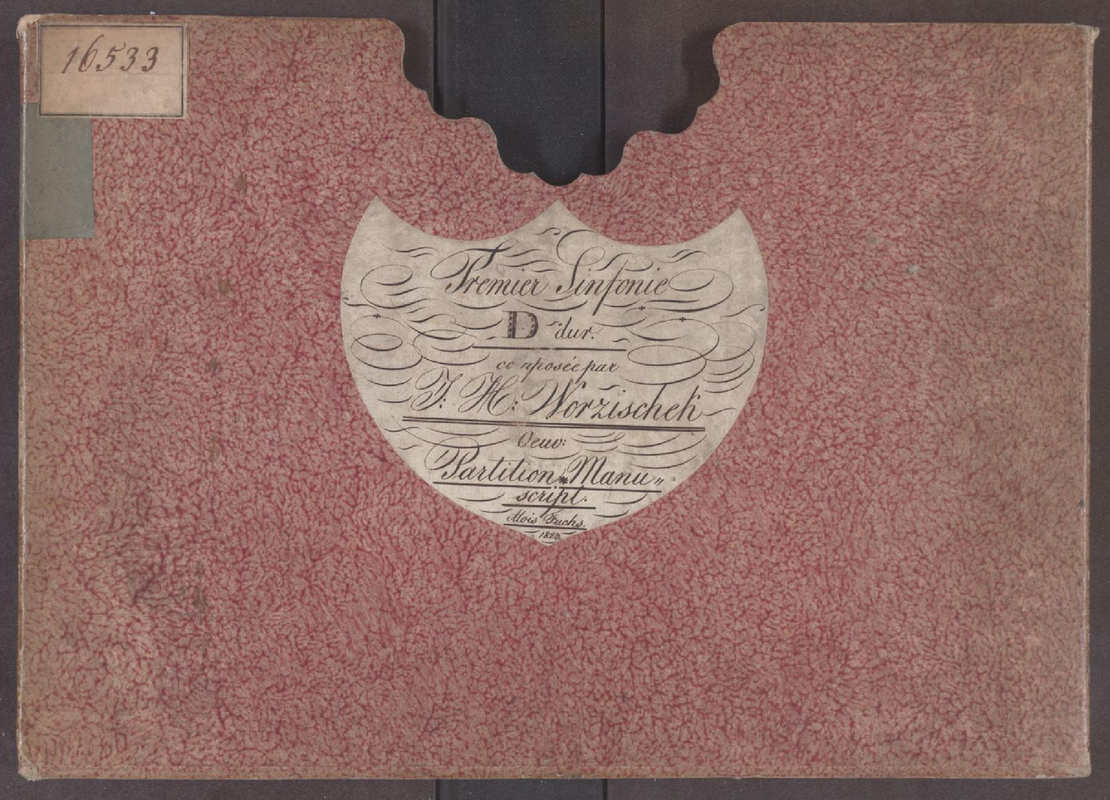 16533
Premier Sinfonie
D dur.
composée par
J: H: Worzischek
Oeuv:
Partition Manu„
script.
Alois Fuchs.